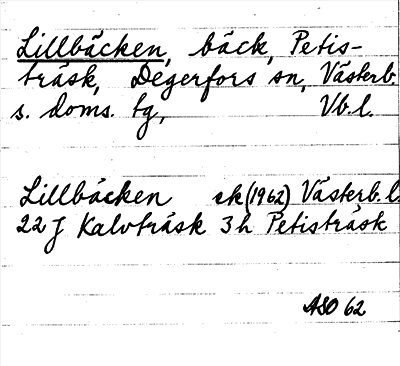 Lillbäcken, bäck, Petis-
träsk, Degerfors sn, Västerb.
s. doms. tg, Vb.l.
Lillbäcken ek (1962) Västerb.l.
22 J Kalvträsk 3h Petisträsk
ASO 62